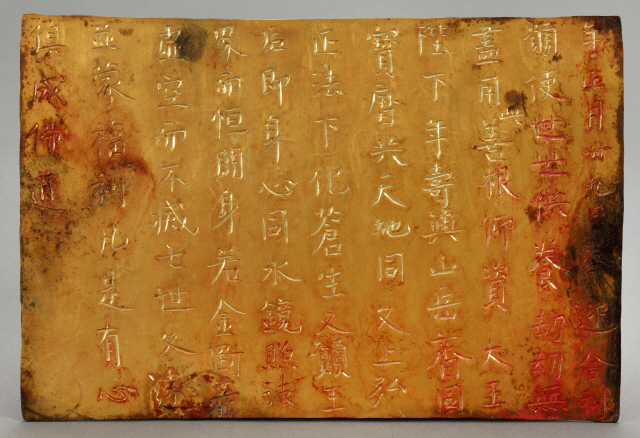 年正月卄九日奉迎舍利
願使世世供養劫劫無
盡用此善根仰資 大王
陛下年壽與山岳齊固
寶曆共天地同久上弘
正法下化蒼生又願王
后即身心同水鏡照法
界而恒明身若金剛等
虛空而不滅七世久遠
並蒙福利凡是有心
俱成佛道